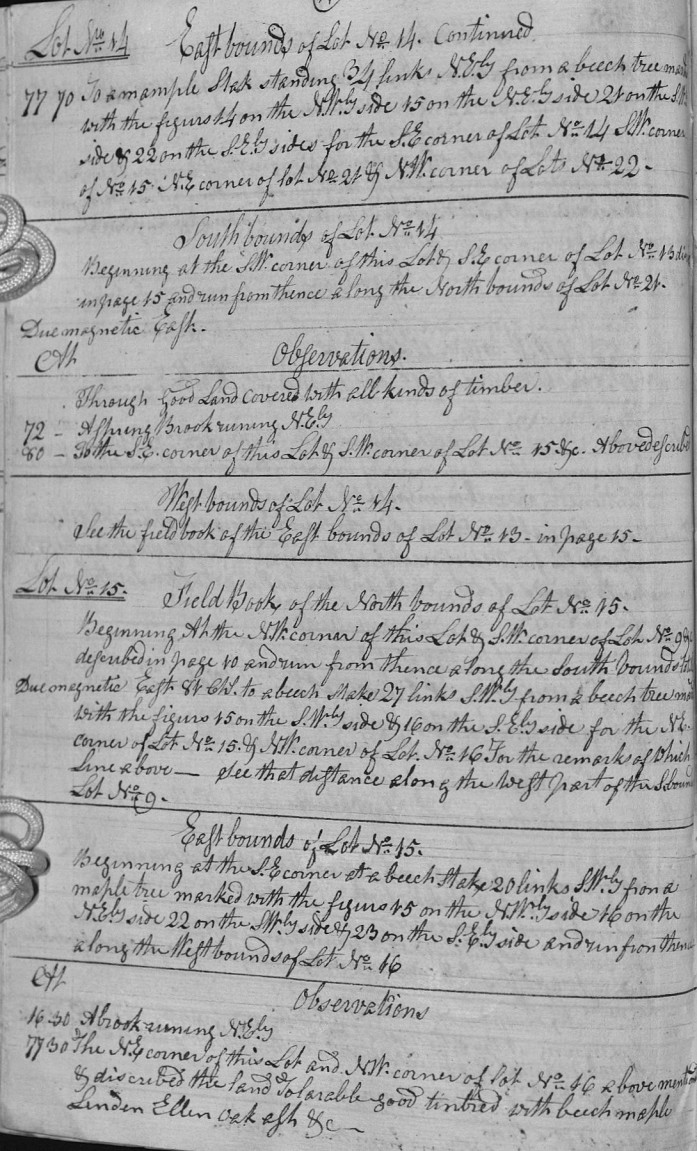 Lot No. 14 East bounds of Lot No. 14. Continued
77 70 To a maple Stak standing 34 links N.Ely from a beech tree mark
with the figurs 14 on the N.Wly side 15 on the N.Ely side 21 on the S.W
side & 22 on the S.Ely sides for the S.E corner of Lot No. 14 S.W. corner
of No. 15 N.E corner of lot No. 21 & N.W. corner of Lots No. 22 -
South bounds of Lot No. 14
Beginning at the S.W. corner of this Lot & S.E corner of Lot No. 13
in page 15 and run from thence along the North bounds of Lot No. 21.
Due magnetic East.
At Observations.
Through Good Land covered with all kinds of timber.
72 - A Spring Brook runing N.Ely
80 - To the S.E. corner of this Lot & S.W. corner of Lot No. 15 &c. Above described
West bounds of Lot No. 14.
See the field book of the East bounds of Lot No. 13 - in page 15 -
Lot No. 15. Field Book of the North bounds of Lot No. 15.
Beginning At the N.W. corner of this Lot & S.W. corner of Lot No. 9 &
described in page 10 and run from thence along the South bounds
Due magnetic East 81 Chs. to a beech Stake 27 links S.Wly from a beech tree ma
with the figurs 15 on the S.Wly side & 16 on the S.Ely side for the N.E.
corner of Lot No. 15 & N.W. corner of Lot. No. 16 For the remarks of which
Line above — See that distance along the West part of the S. boun
Lot No. 9.
East bounds of Lot No. 15.
Beginning at the S.E corner at a beech Stake 20 links S.Wly from a
maple tree marked with the figurs 15 on the N.Wly side 16 on the
N.Ely side 22 on the S.Wly side & 23 on the S.Ely side and run from thenc
along the West bounds of Lot No. 16
At Observations
16 30 A brook runing N.Ely
77 30 The N.E corner of this Lot and N.W. corner of lot No. 16 above ment
& discribed the land Tolarable good timbred with beech maple
Linden Ellen oak ash &c —